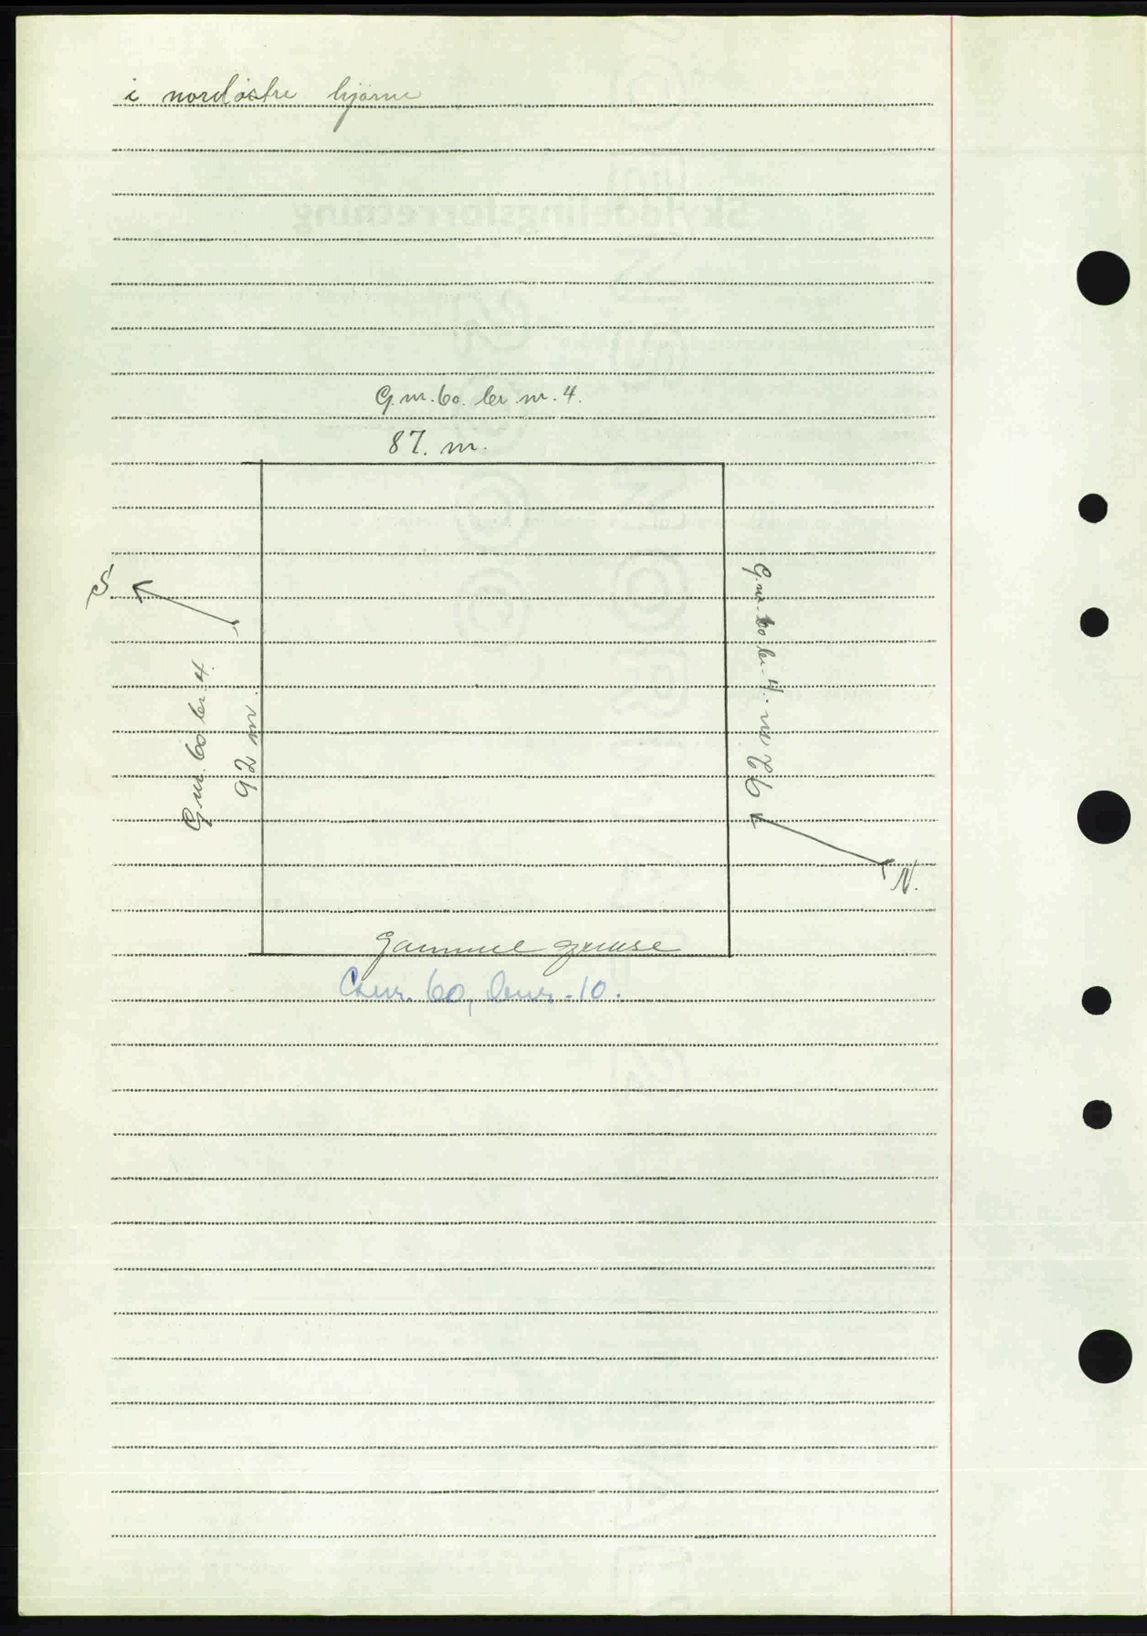 i nordöstre hjörne
G.nr. 60. br nr. 4.
87. m.
S
G.nr. 60 br. 4.
92 m.
G.nr. 60 br. 4.
92 m
N.
gammel grense
Gnr. 60, bnr. 10.
Skylddelingsforretning